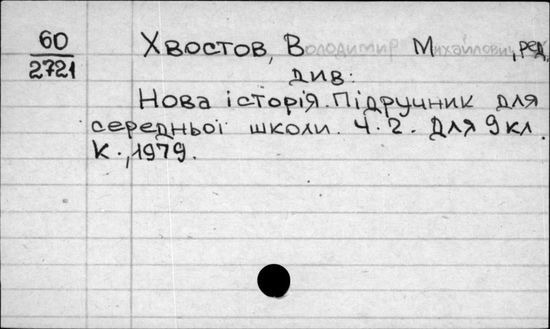 60
2721
Хвостов, Володимир Михайлович, ред.
див:
Нова історія. Підручник для
середньої школи. Ч. 2. Для 9 кл.
К., 1979.